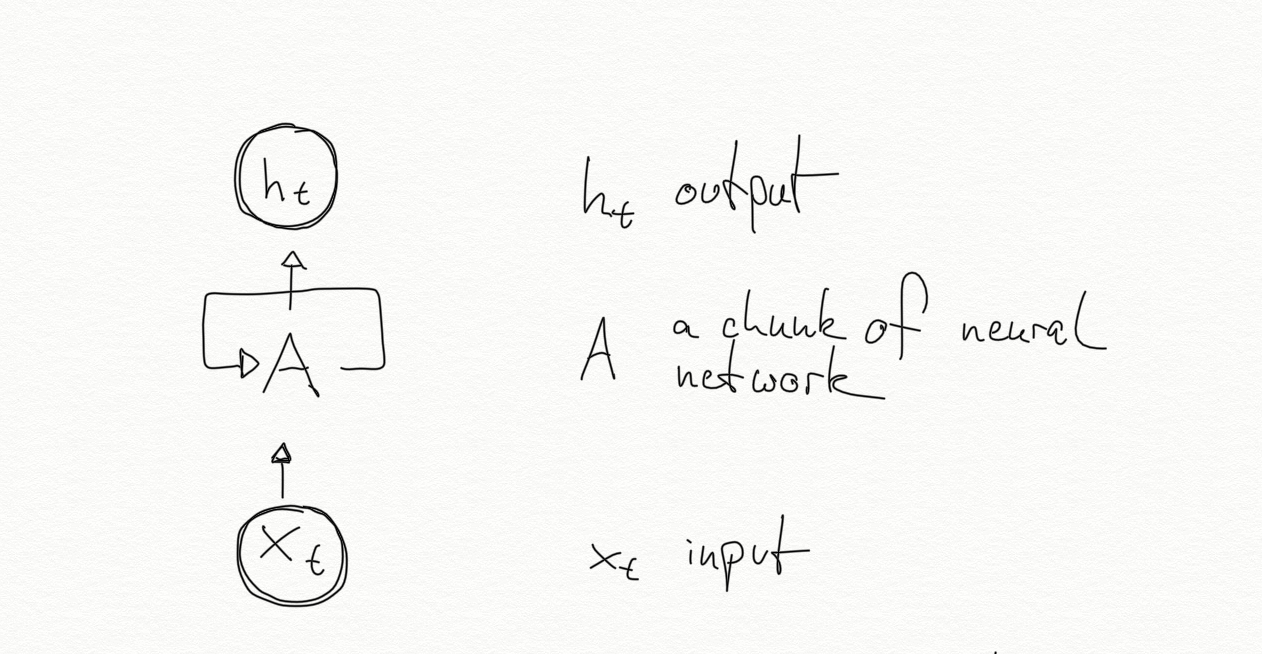 h_t
h_t output
A
A a chunk of neural
network
x_t
x_t input